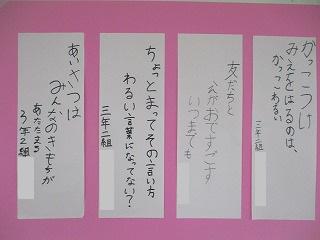 かっこつけ
みえをはるのは、
かっこわるい
三年二組
友だちと
えがおですごす
いつまでも
ちょっとまってその言い方
わるい言葉になってない?
三年二組
あいさつは
みんなのきもちが
あたたまる
3年2組